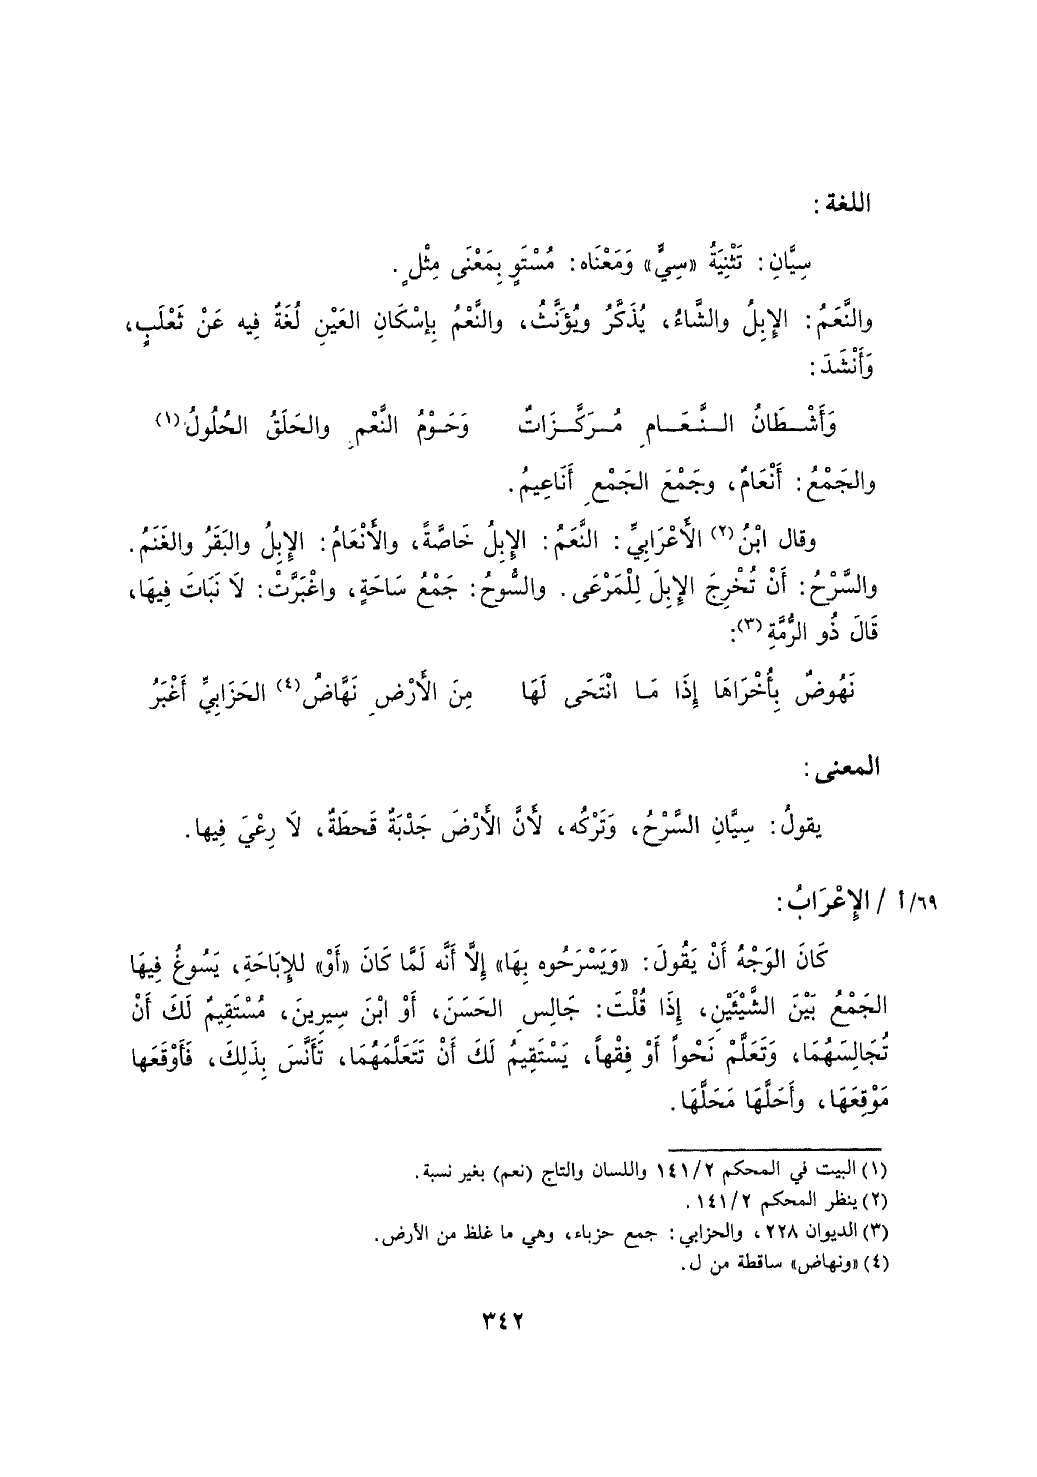 اللغة :
سِيَّانِ: تَثْنِيَةُ «سِيٍّ» وَمَعْنَاه: مُسْتَوٍ بِمَعْنَى مِثْلٍ.
والنَّعَمُ: الإِبِلُ والشَّاءُ، يُذَكَّرُ ويُؤَنَّثُ، والنَّعْمُ بِإسْكَانِ العَيْنِ لُغَةٌ فِيه عَنْ ثَعْلَبٍ،
وَأَنْشَدَ:
وَأَشْطَانُ النَّعَامِ مُرَكَّزَاتٌ وَحَوْمُ النَّعْمِ والحَلَقُ الحُلُولُ(١)
والجَمْعُ: أَنْعَامٌ، وجَمْعَ الجَمْعِ أَنَاعِيمُ.
وقال ابْنُ(٢) الأَعْرَابِيِّ: النَّعَمُ: الإِبِلُ خَاصَّةً، والأَنْعَامُ: الإِبِلُ والبَقَرُ والغَنَمُ.
والسَّرْحُ: أَنْ تُخْرِجَ الإِبِلَ لِلْمَرْعَى. والسُّوحُ: جَمْعُ سَاحَةٍ، واغْبَرَّتْ: لَا نَبَاتَ فِيهَا،
قَالَ ذُو الرُّمَّةِ(٣):
نَهُوضٌ بِأُخْرَاهَا إِذَا مَا انْتَحَى لَهَا مِنَ الأَرْضِ نَهَّاضُ(٤) الحَزَابِيِّ أَغْبَرُ
المعنى :
يقولُ: سِيَّانِ السَّرْحُ، وَتَرْكُه، لأَنَّ الأَرْضَ جَدْبَةٌ قَحطَةٌ، لَا رِعْيَ فِيها.
٦٩/أ / الإِعْرَابُ:
كَانَ الوَجْهُ أَنْ يَقُولَ: «وَيَسْرَحُوه بِهَا» إِلَّا أَنَّه لَمَّا كَانَ «أَوْ» للإِبَاحَةِ، يَسُوغُ فِيهَا
الجَمْعُ بَيْنَ الشَّيْئَيْنِ، إِذَا قُلْتَ: جَالِسِ الحَسَنَ، أَوْ ابْنَ سِيرِينَ، مُسْتَقِيمٌ لَكَ أَنْ
تُجَالِسَهُمَا، وَتَعَلَّمْ نَحْواً أَوْ فِقْهاً، يَسْتَقِيمُ لَكَ أَنْ تَتَعَلَّمَهُمَا، تَأَنَّسَ بِذَلِكَ، فَأَوْقَعَها
مَوْقِعَهَا، وأَحَلَّهَا مَحَلَّهَا.
(١) البيت في المحكم ١٤١/٢ واللسان والتاج (نعم) بغير نسبة.
(٢) ينظر المحكم ١٤١/٢.
(٣) الديوان ٢٢٨، والحزابي: جمع حزباء، وهي ما غلظ من الأرض.
(٤) «ونهاض» ساقطة من ل.
٣٤٢